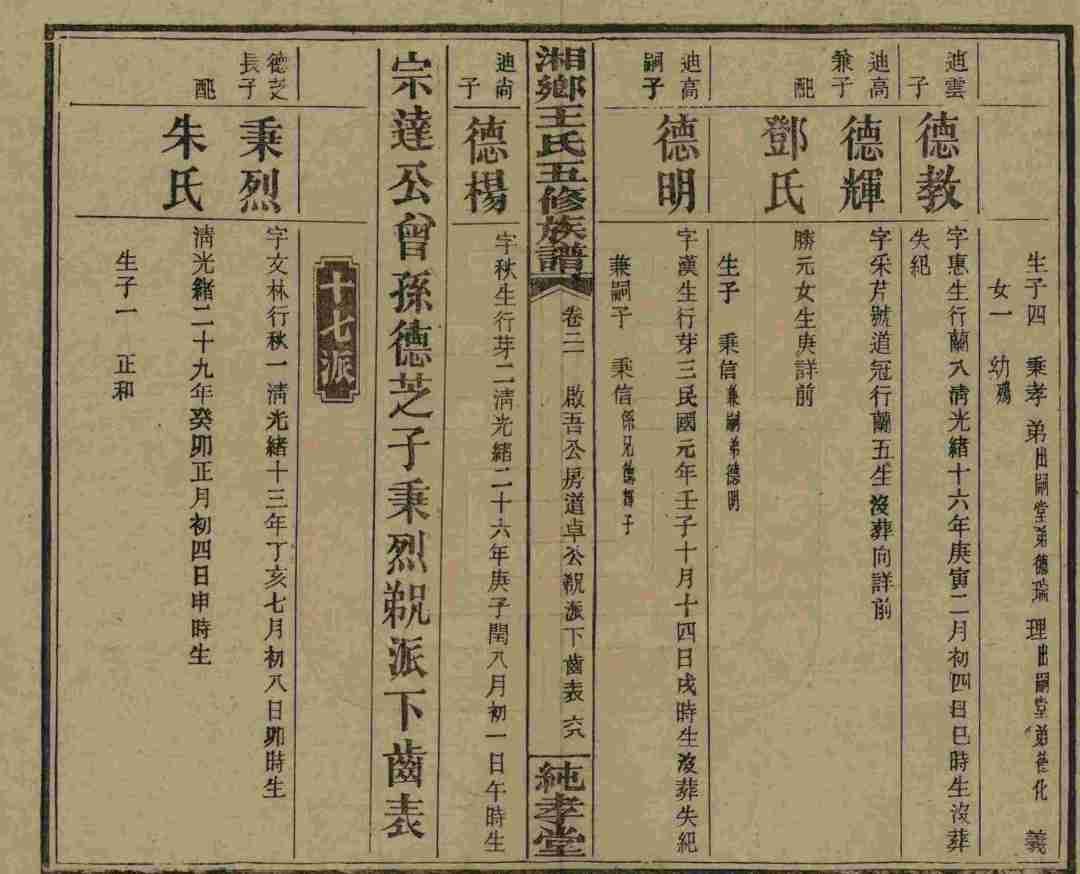 生子四 秉孝 弟出嗣堂弟德瑞 理出嗣堂弟德化 義
女一 幼殤
迪雲子
德教
字惠生行蘭八清光緒十六年庚寅二月初四日巳時生沒葬
失紀
迪高兼子
德輝
字采芹號道冠行蘭五生沒葬向詳前
配
鄧氏
勝元女生庚詳前
生子 秉信兼嗣弟德明
迪高嗣子
德明
字漢生行芽三民國元年壬子十月十四日戌時生沒葬失紀
兼嗣子 秉信係兄德輝子
湘鄉王氏五修族譜
卷二 啟吾公房道卓公派下齒表 六八
純孝堂
迪尚子
德楊
字秋生行芽二清光緒二十六年庚子閏八月初一日午時生
宗達公曾孫德芝子秉烈派下齒表
十七派
德芝長子
秉烈
字文林行秋一清光緒十三年丁亥七月初八日卯時生
配
朱氏
清光緒二十九年癸卯正月初四日申時生
生子一 正和